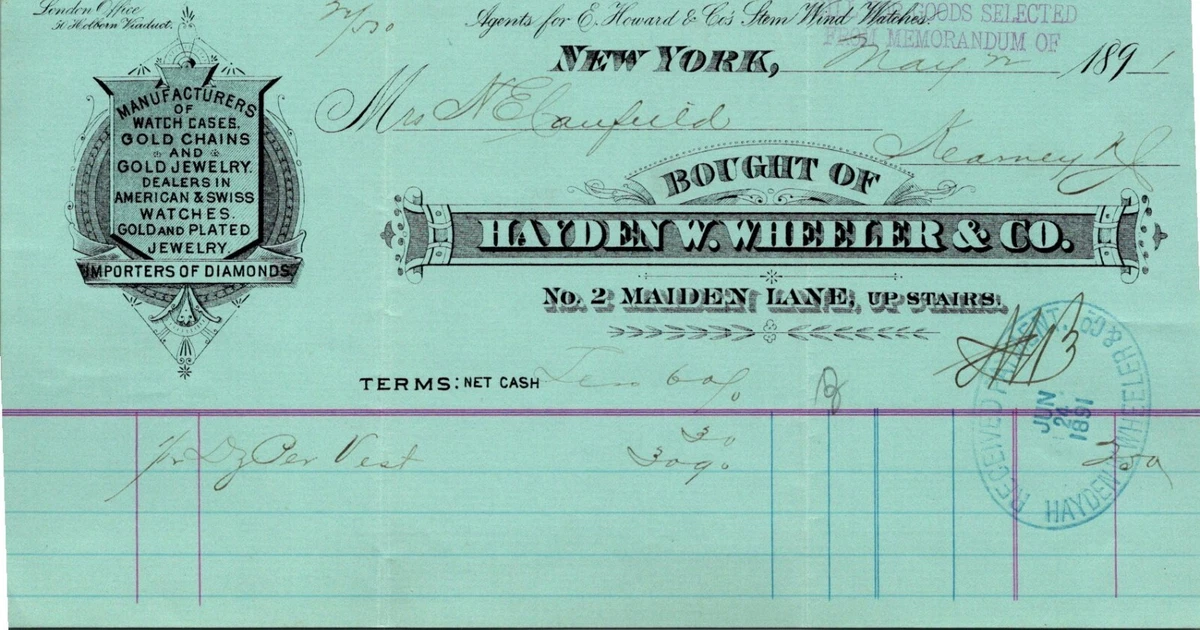 London Office
50 Holborn Viaduct.
Agents for E. Howard & Co's Stem Wind Watches.
GOODS SELECTED
FROM MEMORANDUM OF
NEW YORK, May 2 1891
MANUFACTURERS
OF
WATCH CASES.
GOLD CHAINS
AND
GOLD JEWELRY.
DEALERS IN
AMERICAN & SWISS
WATCHES.
GOLD AND PLATED
JEWELRY.
IMPORTERS OF DIAMONDS.
Mrs N E Canfield
Kearney NJ
BOUGHT OF
HAYDEN W. WHEELER & CO.
No. 2 MAIDEN LANE, UP STAIRS.
TERMS: NET CASH Less 6%
RECEIVED PAYMENT.
JUN
24
1891
HAYDEN WHEELER & CO
Vest